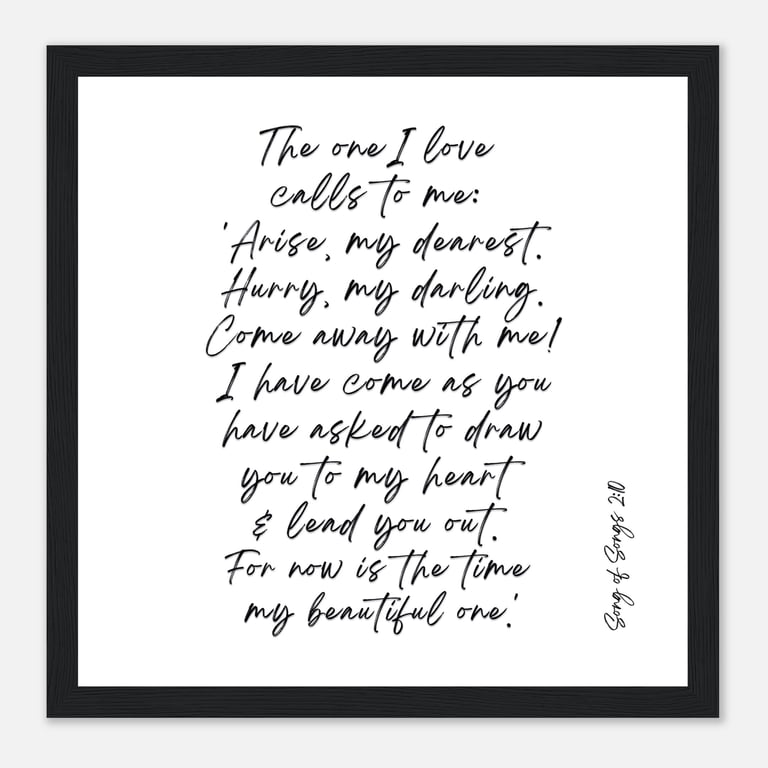 The one I love
calls to me:
'Arise, my dearest.
Hurry, my darling.
Come away with me!
I have come as you
have asked to draw
you to my heart
& lead you out.
For now is the time
my beautiful one'.
Song of Songs 2:10